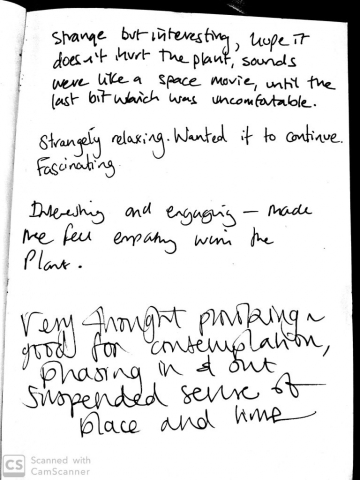 Strange but interesting, hope it
doesn't hurt the plant, sounds
were like a space movie, until the
last bit which was uncomfortable.
Strangely relaxing. Wanted it to continue.
Fascinating
Interesting and engaging — made
me feel empathy with the
Plant.
Very thought provoking ~
good for contemplation,
phasing in & out
suspended sense of
place and time
CS Scanned with
CamScanner